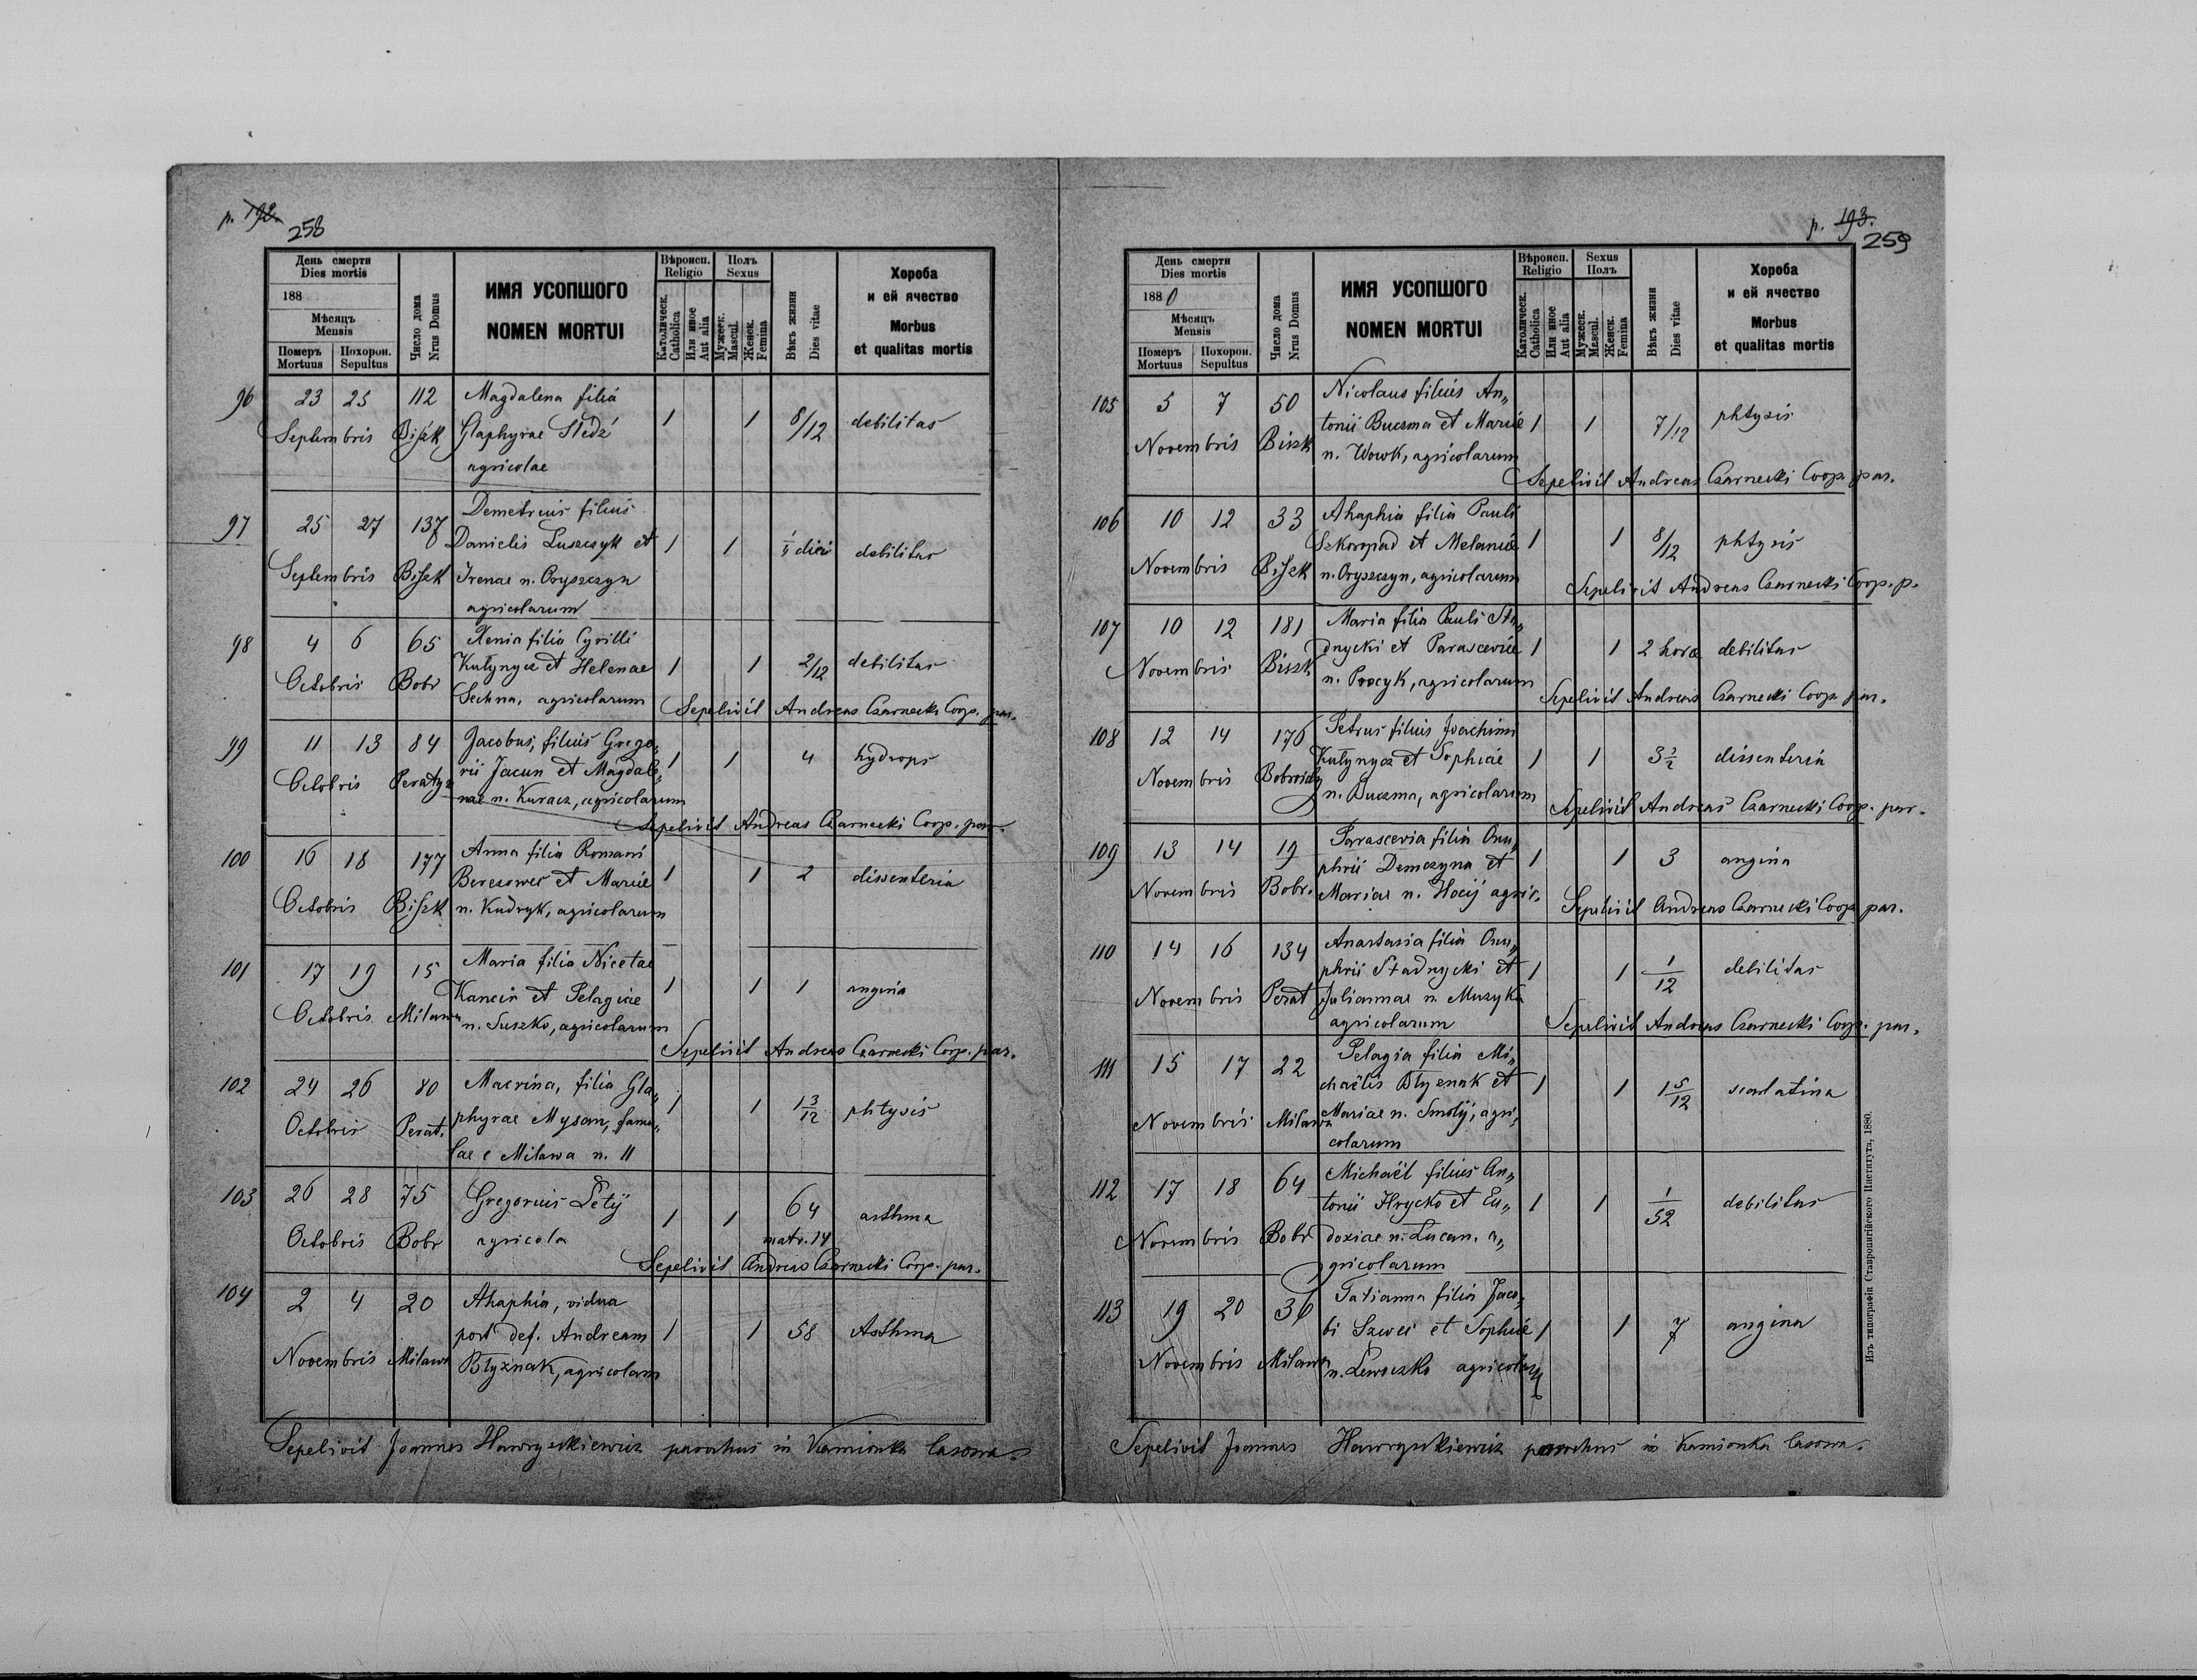 p. 192.
258
День смерти
Dies mortis
188
Мѣсяцъ
Mensis
Померъ
Mortuus
Похорон.
Sepultus
Число дома
Nrus Domus
ИМЯ УСОПШОГО
NOMEN MORTUI
Вѣроисп.
Religio
Католическ.
Catholica
Или иное
Aut alia
Полъ
Sexus
Мужеск.
Mascul.
Женск.
Femina
Вѣкъ жизни
Dies vitae
Хороба
и ей ячество
Morbus
et qualitas mortis
96 23 25 112 Magdalena filia
Septembris Biszk Glaphyrae Sledź 1 1 8/12 debilitas
agricolae
97 25 27 137 Demetrius filius
Danielis Luszczyk et 1 1 dici debilitas
Septembris Biszk Irenae n. Oryszczyn
agricolarum
98 4 6 65 Xenia filia Cyrilli
Kułynycz et Helenae 1 1 2/12 debilitas
Octobris Bobr Sechna, agricolarum
Sepelivit Andreas Czarnecki Coop. par.
99 11 13 84 Jacobus, filius Grego„
rii Jacun et Magdale„ 1 1 4 hydrops
Octobris Peratyn nae n. Kuracz, agricolarum
Sepelivit Andreas Czarnecki Coop. par.
100 16 18 177 Anna filia Romani
Berezowec et Mariae 1 1 2 dissenteria
Octobris Biszk n. Kudryk, agricolarum
101 17 19 15 Maria filia Nicetae
Kancir et Pelagiae 1 1 1 angina
Octobris Milawa n. Suszko, agricolarum
Sepelivit Andreas Czarnecki Coop. par.
102 24 26 80 Macrina, filia Gla„
phyrae Mysan, famu„ 1 1 1 3/12 phtysis
Octobris Perat. lae e Milawa n. 11
103 26 28 75 Gregorius Letij 1 1 64 asthma
Octobris Bobr agricola matr. 14
Sepelivit Andreas Czarnecki Coop. par.
104 2 4 20 Ahaphia, vidua
post def. Andream 1 1 58 Asthma
Novembris Milawa Błyznak, agricolam
Sepelivit Joannes Hawryszkiewicz parochus in Kamionka lasowa.
p. 193.
259
День смерти
Dies mortis
1880
Мѣсяцъ
Mensis
Померъ
Mortuus
Похорон.
Sepultus
Число дома
Nrus Domus
ИМЯ УСОПШОГО
NOMEN MORTUI
Вѣроисп.
Religio
Католическ.
Catholica
Или иное
Aut alia
Sexus
Полъ
Мужеск.
Mascul.
Женск.
Femina
Вѣкъ жизни
Dies vitae
Хороба
и ей ячество
Morbus
et qualitas mortis
105 5 7 50 Nicolaus filius An„
tonii Buczma et Mariae 1 1 7/12 phtysis
Novembris Biszk n. Wowk, agricolarum
Sepelivit Andreas Czarnecki Coop. par.
106 10 12 33 Ahaphia filia Pauli
Szkoropad et Melaniae 1 1 8/12 phtysis
Novembris Biszk n. Oryszczyn, agricolarum
Sepelivit Andreas Czarnecki Coop. p.
107 10 12 181 Maria filia Pauli Sta„
dnycki et Parasceviae 1 1 2 horae debilitas
Novembris Biszk n. Procyk, agricolarum
Sepelivit Andreas Czarnecki Coop. par.
108 12 14 176 Petrus filius Joachimi
Kułynycz et Sophiae 1 1 3 1/2 dissenteria
Novembris Bobroidy n. Buczma, agricolarum
Sepelivit Andreas Czarnecki Coop. par.
109 13 14 19 Parascevia filia Onu„
phrii Demczyna et 1 1 3 angina
Novembris Bobr. Mariae n. Hocij agric.
Sepelivit Andreas Czarnecki Coop. par.
110 14 16 134 Anastasia filia Onu„
phrii Stadnycki et 1 1 1/12 debilitas
Novembris Perat Juliannae n. Muzyka
agricolarum
Sepelivit Andreas Czarnecki Coop. par.
111 15 17 22 Pelagia filia Mi„
chaëlis Błyznak et 1 1 1 5/12 scarlatina
Novembris Milawa Mariae n. Smolij, agri„
colarum
112 17 18 64 Michaël filius An„
tonii Hrycko et Eu„ 1 1 1/52 debilitas
Novembris Bobr doxiae n. Lucan. a„
gricolarum
113 19 20 36 Tatianna filia Jaco„
bi Szwec et Sophiae 1 1 7 angina
Novembris Milawa n. Lewoczko agricolar
Sepelivit Joannes Hawryszkiewicz parochus in Kamionka lasowa.
Изъ типографіи Ставропигійского Института, 1880.